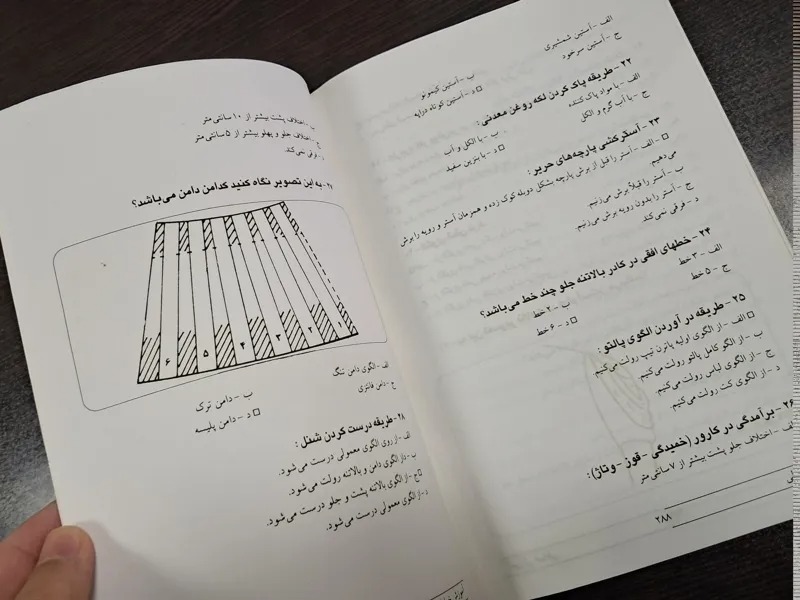 الف - آستین شمشیری
ب - آستین کیمونو
ج - آستین سرخود
□ د - آستین کوتاه دولایه
۲۲ - طریقه پاک کردن لکه روغن معدنی :
الف - با مواد پاک کننده
ب - با الکل و آب
ج - با آب گرم و الکل
□ د - با بنزین سفید
۲۳ - آسترکشی پارچه‌های حریر :
□ - الف - آستر را قبل از برش پارچه بشکل دوبله کوک زده و همزمان آستر و رویه را برش
می‌دهیم.
ب - آستر را قبلاً برش می‌زنیم.
ج - آستر را بدون رویه برش می‌زنیم.
د - فرقی نمی‌کند.
۲۴ - خطهای افقی در کادر بالاتنه جلو چند خط می‌باشد؟
الف - ۳ خط
ب - ۲ خط
ج - ۵ خط
□ د - ۶ خط
۲۵ - طریقه در آوردن الگوی پالتو :
□ الف - از الگوی اولیه پاترن تیپ رولت می‌کنیم.
ب - از الگو کامل پالتو رولت می‌کنیم.
ج - از الگوی لباس رولت می‌کنیم.
د - از الگوی کت رولت می‌کنیم.
۲۶ - برآمدگی در کارور (خمیدگی - قوز - وتاژ) :
الف - اختلاف جلو پشت بیشتر از ۷ سانتی متر
۲۸۸
ب - اختلاف پشت بیشتر از ۱۰ سانتی متر
ج - اختلاف جلو و پهلو بیشتر از ۵ سانتی متر
د - فرقی نمی‌کند.
۲۷ - به این تصویر نگاه کنید کدامن دامن می‌باشد؟
۶ ۵ ۴ ۳ ۲ ۱
الف - الگوی دامن تنگ
ب - دامن ترک
ج - دامن فانتزی
□ د - دامن پلیسه
۲۸ - طریقه درست کردن شنل :
الف - از روی الگوی معمولی درست می‌شود.
ب - از الگوی دامن و بالاتنه رولت می‌شود.
□ ج - از الگوی بالاتنه پشت و جلو درست می‌شود.
د - از الگوی معمولی درست می‌شود.